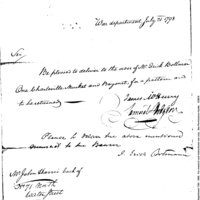 War department July 21 1798
Sir,
Be pleased to deliver to the order of Mr Erick Bollman
One Charleville Musket and Bayonet, for a pattern and
to be returned
James McHenry
Samuel Hodgdon
Please to deliver the above mentioned
to the Bearer
J. Erick Bollmann
Mr John Harris
North
Water Street